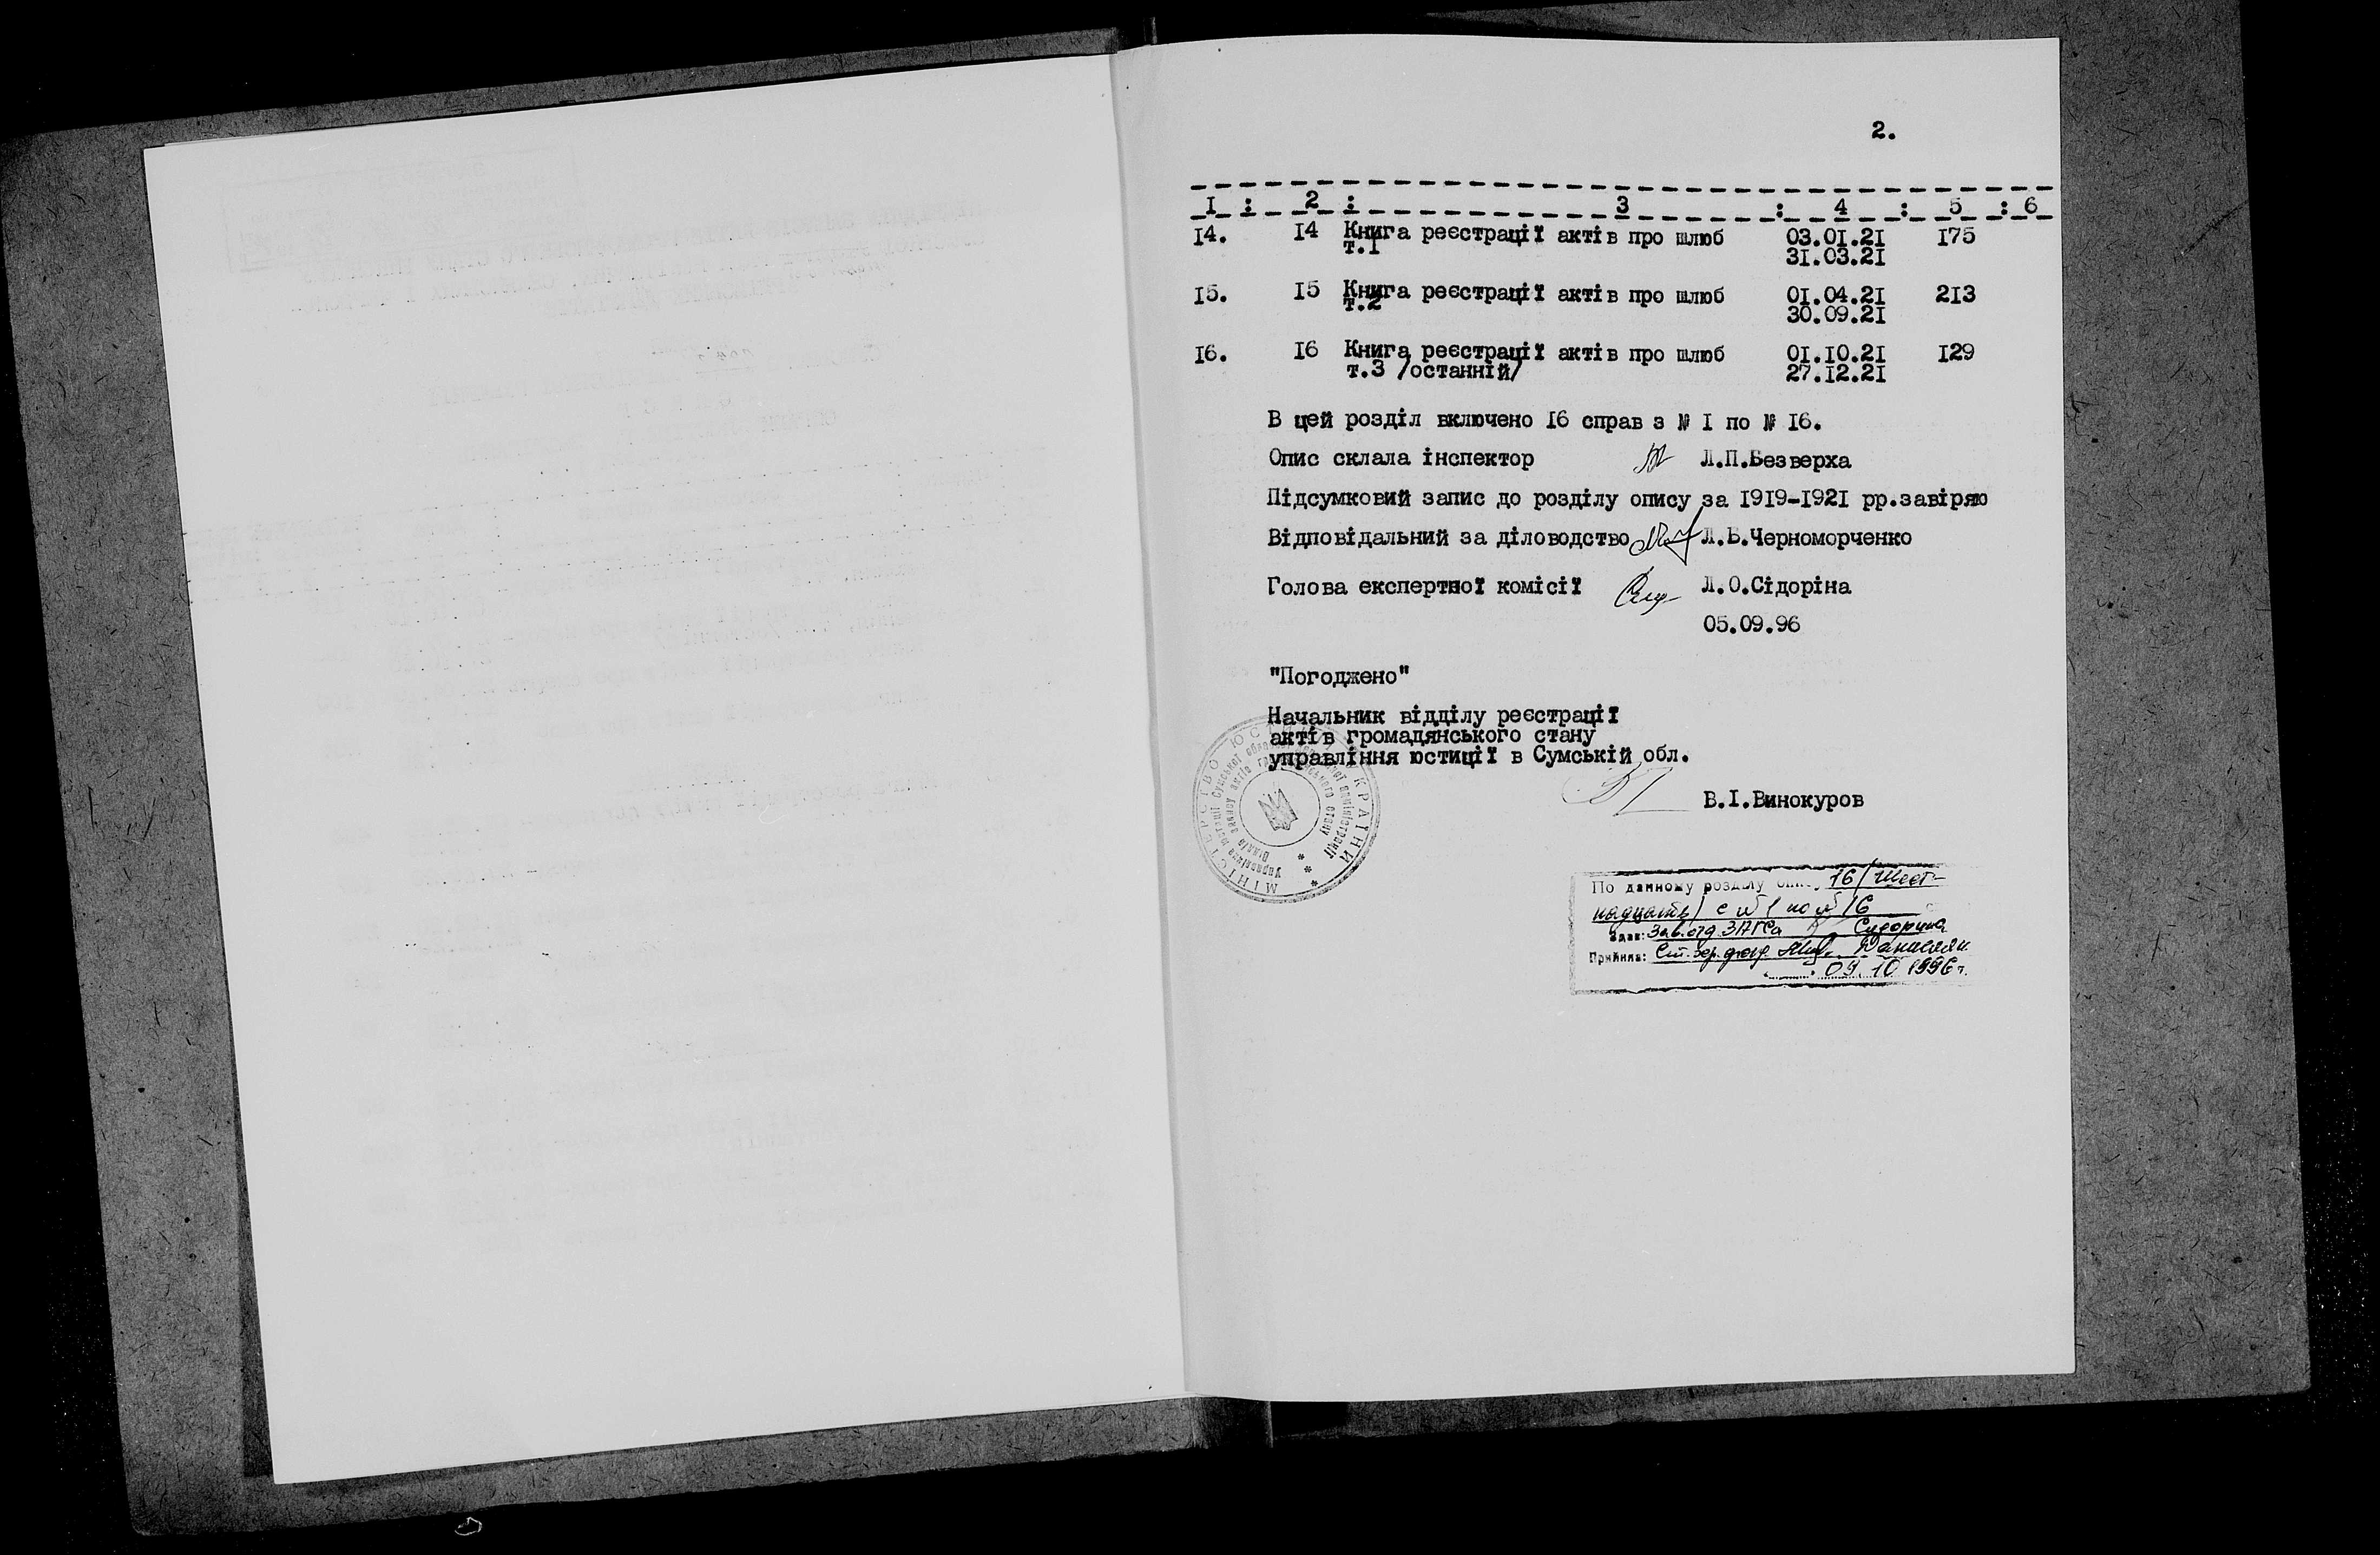 2.
I : 2 : 3 : 4 : 5 : 6
I4. I4 Книга реєстрації актів про шлюб 03.0I.2I I75
т.I 3I.03.2I
I5. I5 Книга реєстрації актів про шлюб 0I.04.2I 2I3
т.2 30.09.2I
I6. I6 Книга реєстрації актів про шлюб 0I.I0.2I I29
т.3 /останній/ 27.I2.2I
В цей розділ включено I6 справ з № I по № I6.
Опис склала інспектор Л.П.Безверха
Підсумковий запис до розділу опису за I9I9-I92I рр.завіряю
Відповідальний за діловодство Л.В.Черноморченко
Голова експертної комісії Л.О.Сідоріна
05.09.96
"Погоджено"
Начальник відділу реєстрації
актів громадянського стану
управління юстиції в Сумській обл.
В.І.Винокуров
МІНІСТЕРСТВО ЮСТИЦІЇ УКРАЇНИ
По данному розділу 16/шест-
надцать) с №1 по №16
Здав: Зав.отд. ЗАГСа Сидорина
Прийняв: Ст.
09.10 1996 г.